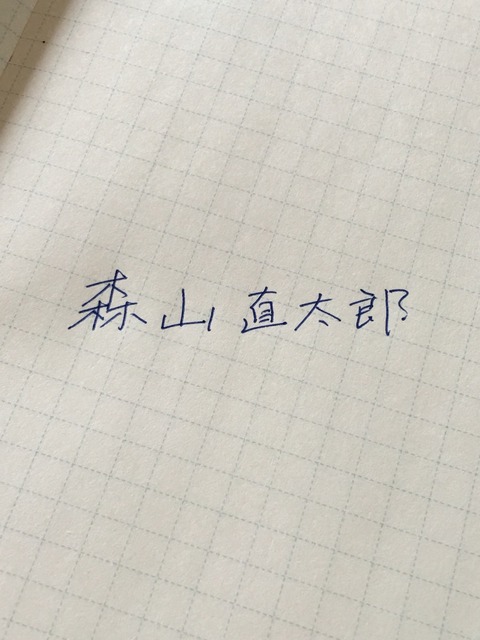 森山直太郎